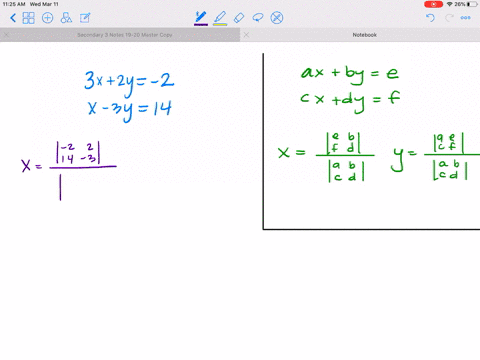 11:25 AM Wed Mar 11
26%
Secondary 3 Notes 19-20 Master Copy
Notebook
3x+2y=-2
x-3y=14
x = |-2 2| / |
|14 -3|
ax+by=e
cx+dy=f
x = |e b| / |a b|
|f d| / |c d|
y = |a e| / |a b|
|c f| / |c d|